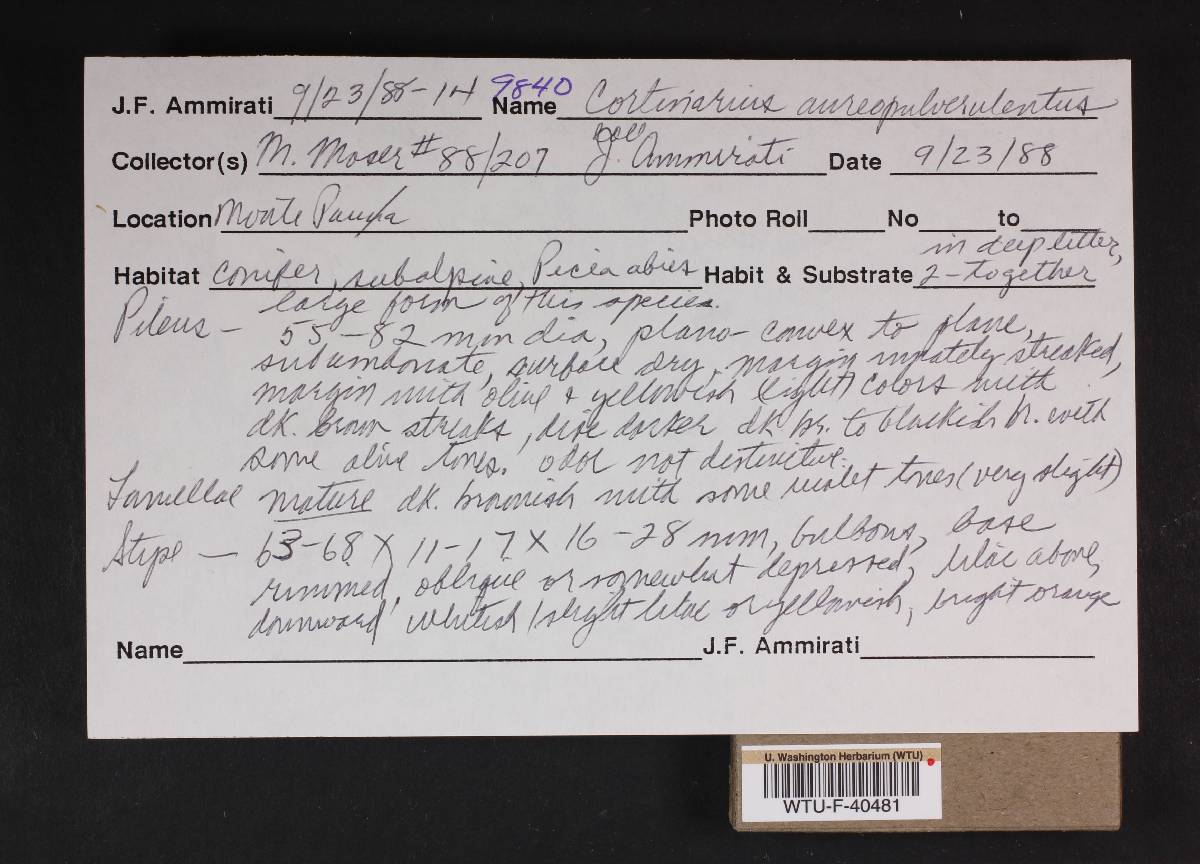 J.F. Ammirati 9/23/88-14 9840 Name Cortinarius aureopulverulentus
Collector(s) M. Moser #88/207 Coll J. Ammirati Date 9/23/88
Location Monte Photo Roll No to
Habitat conifer, subalpine, Picea abies Habit & Substrate in deep litter, 2-together
large form of this species.
Pileus – 55-82 mm dia, plano-convex to plane,
subumbonate, surface dry, margin innately streaked,
margin with olive & yellowish (light) colors with
dk. brown streaks, disc darker dk br. to blackish br. with
some olive tones. odor not distinctive.
Lamellae mature dk. brownish with some violet tones (very slight)
Stipe — 63-68 X 11-17 X 16-28 mm, bulbous, base
rimmed, oblique or somewhat depressed, lilac above,
downward whitish/slight lilac or yellowish, bright orange
Name J.F. Ammirati
U. Washington Herbarium (WTU)
WTU-F-40481